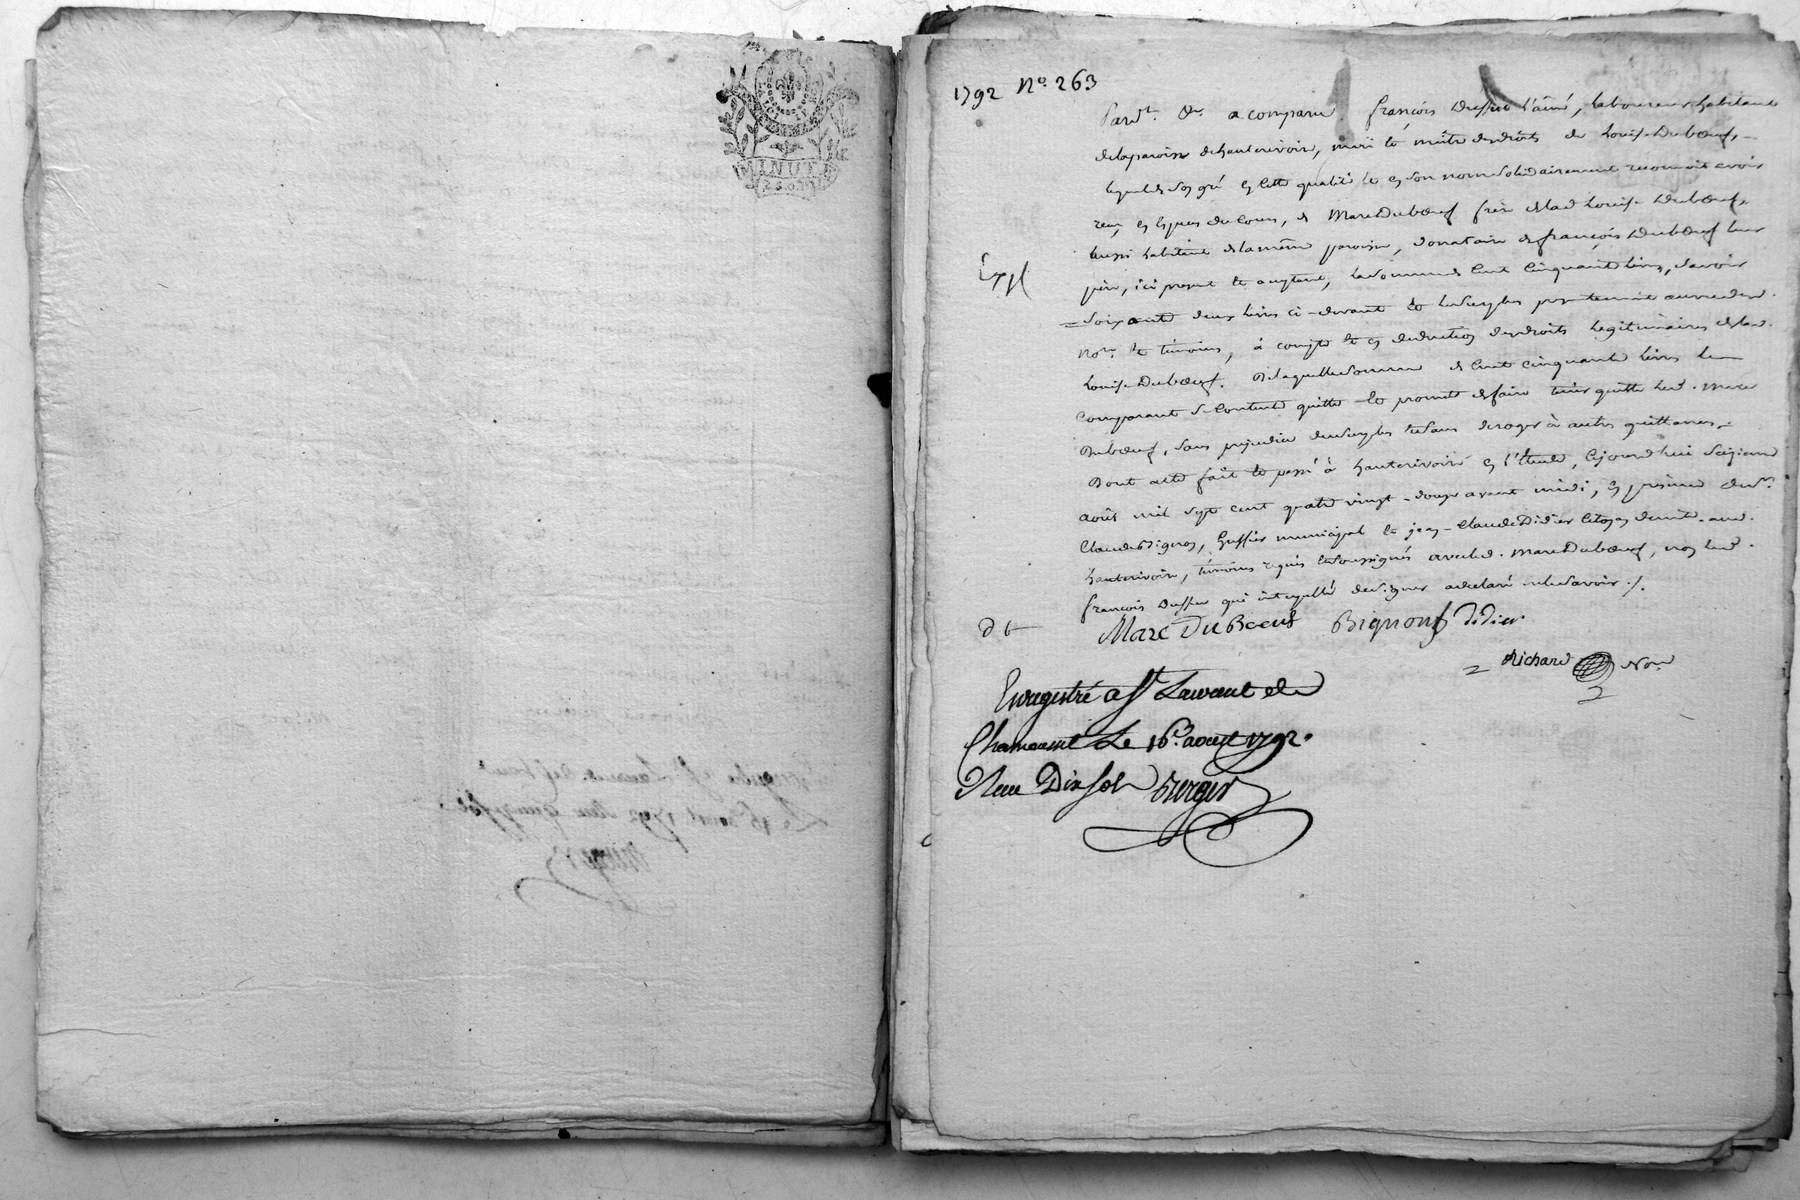 MINUTE
1792 N° 263
Pard.t &.a a comparu françois Dussuc l'aîné, laboureur habitant
de la paroisse de hauterivoire, mari et maître des droits de Louise Duboeuf,
lequel de son gré en cette qualité et en son nom solidairement reconnoit avoir
reçu en espèces du cours, de Marc Duboeuf frère de lad. Louise Duboeuf,
aussi habitant de la même paroisse, donataire de françois Duboeuf leur
Exp.
père, ici présent et acceptant, la somme de Cent Cinquante livres, savoir
soixante deux livres ci-devant et le surplus présentement au vu des d.
No.re et témoins, à compte et en déduction des droits légitimaires de lad.
Louise Duboeuf. De laquelle somme de Cent cinquante livres le
comparant se contente quitte et promet de faire tenir quitte led. Marc
Duboeuf, sans préjudice du surplus et sans déroger à autres quittances.
Dont acte fait et passé à hauterivoire en l'étude, cejourd'hui seizieme
août mil sept cent quatre vingt-douze avant midi, en présence de s.r
Claude Bignon, huissier municipal et jean-Claude Didier Citoyen dud.
hauterivoire, témoins requis et soussignés avec led. Marc Duboeuf, non led.
françois Dussuc qui interpellé de signer a déclaré ne le savoir ./.
Marc DuBoeuf Bignon Didier
Richard No.re
Enregistré a St Laurent de
Chamousset Le 16.e aoust 1792.
Reçu Dix sols Berger